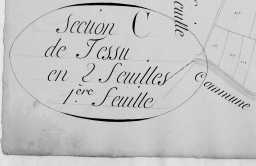 Section C
de Tessu
en 2 feuilles
1.ère feuille
feuille
Commune